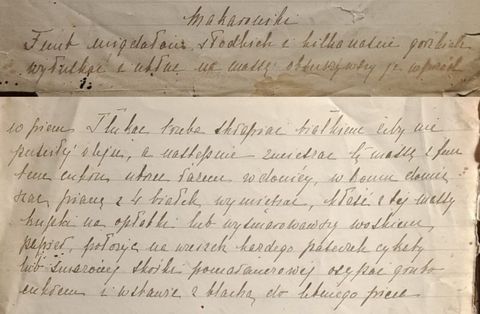 Makaroniki
Funt migdałów słodkich i kilkanaście gorzkich
wytłukać i utłuc na masę obłuszywszy je wprzód
w piem Tłukąc trzeba skrapiać białkiem żeby nie
puściły oleju, a następnie zmieszać tę masę z fun
tem cukru utrzeć razem w donicy, w końcu domie
szać pianę z 4 białek wymieszać, kłaść z tej masy
kupki na opłatki lub wysmarowawszy woskiem
papier, położyć na wierzch każdego paseczek cykaty
lub smażonej skórki pomarańczowej osypać grubo
cukrem i wstawić z blachą do letniego pieca